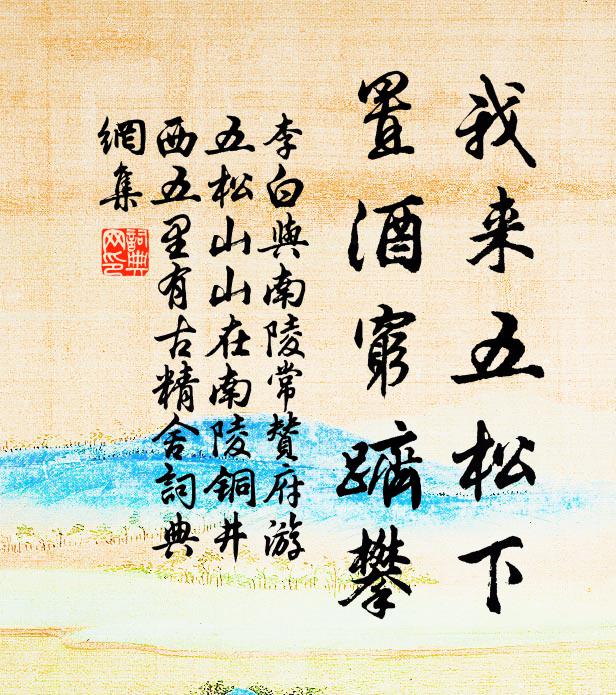 我来五松下
置酒窮躋攀
李白與南陵常贊府游
五松山山在南陵铜井
西五里有古精舍詞典
網集
詞典
网印